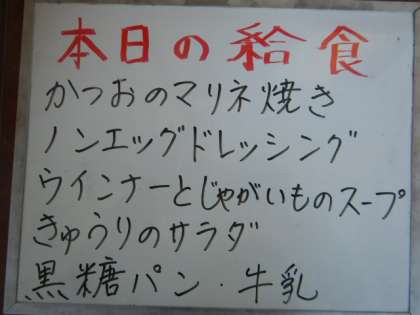 本日の給食
かつおのマリネ焼き
ノンエッグドレッシング
ウインナーとじゃがいものスープ
きゅうりのサラダ
黒糖パン・牛乳